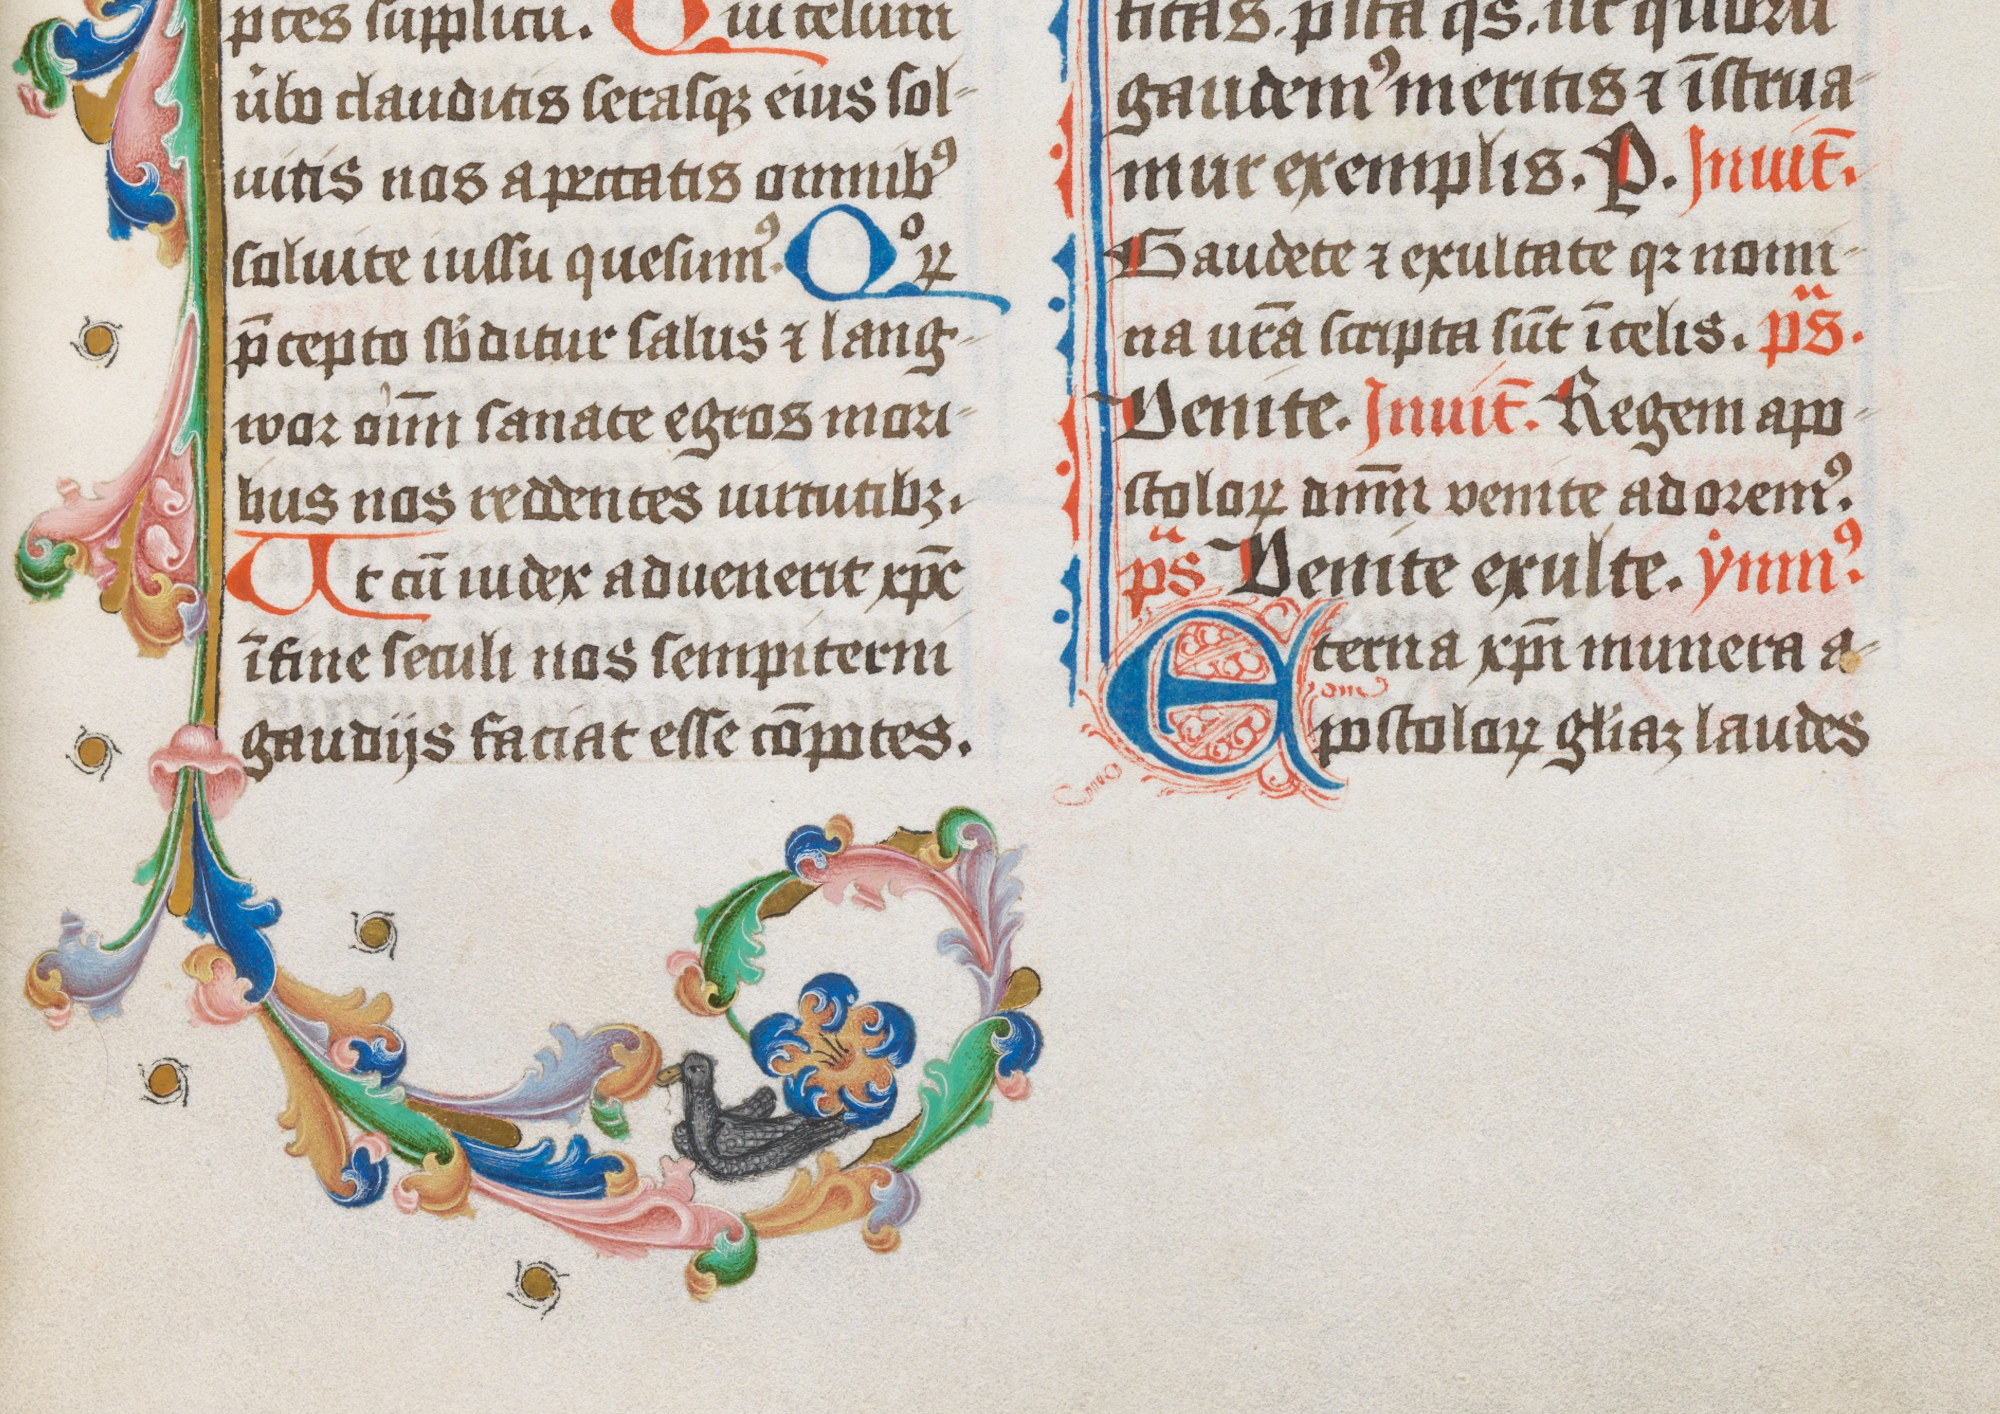 ptes supplicii. Qui celum
ůbo clauditis serasqꝫ eius sol-
uitis nos a peccatis omnibꝰ
soluite iussu quesumꝰ. Qoꝝ
p̄cepto sb̄ditur salus ⁊ lang-
wor oīm̄ sanate egros mori-
bus nos reddentes uirtutibꝫ.
Ut cū iudex aduenerit xp̄c
ī fine seculi nos sempiterni
gaudijs faciat esse cōpotes.
titas. p̄sta qs̄. ut quorū
gaudemꝰ meritis ⁊ īstrua-
mur exemplis. P. Inuit̄.
Gaudete ⁊ exultate qꝛ nomi-
na ur̄a scripta sūt ī celis. ps̄.
Venite. Inuit̄. Regem apo-
stoloꝝ dnm̄ venite adoremꝰ.
ps̄ Venite exulte. ẏmnꝰ.
Eterna xp̄i munera a-
postoloꝝ gl̄iaꝫ laudes